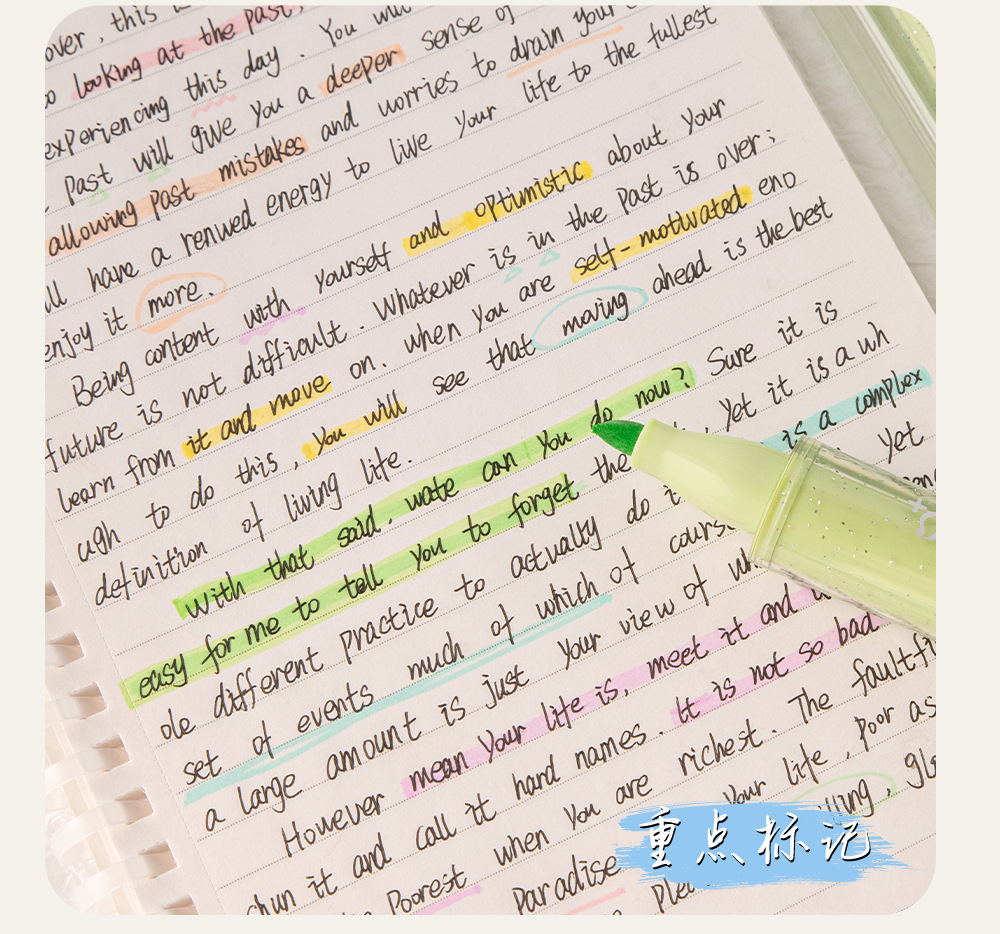 over, this
looking at the past,
experiencing this day. You will
Past will give You a deeper sense of
allowing Past mistakes and worries to drain your
ll have a renwed energy to live Your life to the fullest
enjoy it more.
Being content with yourself and optimistic about Your
future is not difficult. Whatever is in the Past is over;
learn from it and move on. when You are self-motivated eno
ugh to do this, You will see that moving ahead is the best
definition of living life.
With that said, wate can You do now? Sure it is
easy for me to tell You to forget the , Yet it is a wh
ole different practice to actually do it is a complex
set of events much of which of course Yet
a large amount is just Your view of
However mean Your life is, meet it and
chun it and call it hard names. It is not so bad
Poorest when You are richest. The faultfi
Paradise Your life, Poor as
重点标记